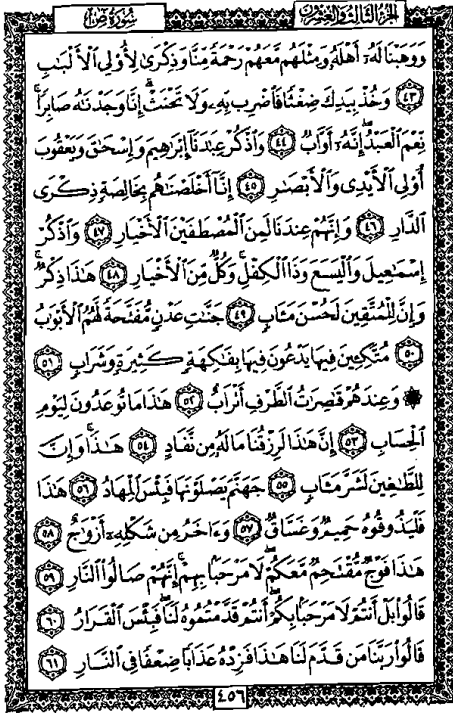 الجزء الثالث والعشرون سورة ص
وَوَهَبْنَا لَهُۥٓ أَهْلَهُۥ وَمِثْلَهُم مَّعَهُمْ رَحْمَةً مِّنَّا وَذِكْرَىٰ لِأُو۟لِى ٱلْأَلْبَٰبِ
٤٣ وَخُذْ بِيَدِكَ ضِغْثًا فَٱضْرِب بِّهِۦ وَلَا تَحْنَثْ ۗ إِنَّا وَجَدْنَٰهُ صَابِرًا ۚ
نِّعْمَ ٱلْعَبْدُ ۖ إِنَّهُۥٓ أَوَّابٌ ٤٤ وَٱذْكُرْ عِبَٰدَنَآ إِبْرَٰهِيمَ وَإِسْحَٰقَ وَيَعْقُوبَ
أُو۟لِى ٱلْأَيْدِى وَٱلْأَبْصَٰرِ ٤٥ إِنَّآ أَخْلَصْنَٰهُم بِخَالِصَةٍ ذِكْرَى
ٱلدَّارِ ٤٦ وَإِنَّهُمْ عِندَنَا لَمِنَ ٱلْمُصْطَفَيْنَ ٱلْأَخْيَارِ ٤٧ وَٱذْكُرْ
إِسْمَٰعِيلَ وَٱلْيَسَعَ وَذَا ٱلْكِفْلِ ۖ وَكُلٌّ مِّنَ ٱلْأَخْيَارِ ٤٨ هَٰذَا ذِكْرٌ ۚ
وَإِنَّ لِلْمُتَّقِينَ لَحُسْنَ مَـَٔابٍ ٤٩ جَنَّٰتِ عَدْنٍ مُّفَتَّحَةً لَّهُمُ ٱلْأَبْوَٰبُ
٥٠ مُتَّكِـِٔينَ فِيهَا يَدْعُونَ فِيهَا بِفَٰكِهَةٍ كَثِيرَةٍ وَشَرَابٍ ٥١
۞ وَعِندَهُمْ قَٰصِرَٰتُ ٱلطَّرْفِ أَتْرَابٌ ٥٢ هَٰذَا مَا تُوعَدُونَ لِيَوْمِ
ٱلْحِسَابِ ٥٣ إِنَّ هَٰذَا لَرِزْقُنَا مَا لَهُۥ مِن نَّفَادٍ ٥٤ هَٰذَا ۚ وَإِنَّ
لِلطَّٰغِينَ لَشَرَّ مَـَٔابٍ ٥٥ جَهَنَّمَ يَصْلَوْنَهَا فَبِئْسَ ٱلْمِهَادُ ٥٦ هَٰذَا
فَلْيَذُوقُوهُ حَمِيمٌ وَغَسَّاقٌ ٥٧ وَءَاخَرُ مِن شَكْلِهِۦٓ أَزْوَٰجٌ ٥٨
هَٰذَا فَوْجٌ مُّقْتَحِمٌ مَّعَكُمْ ۖ لَا مَرْحَبًۢا بِهِمْ ۚ إِنَّهُمْ صَالُوا۟ ٱلنَّارِ ٥٩
قَالُوا۟ بَلْ أَنتُمْ لَا مَرْحَبًۢا بِكُمْ ۖ أَنتُمْ قَدَّمْتُمُوهُ لَنَا ۖ فَبِئْسَ ٱلْقَرَارُ ٦٠
قَالُوا۟ رَبَّنَا مَن قَدَّمَ لَنَا هَٰذَا فَزِدْهُ عَذَابًا ضِعْفًا فِى ٱلنَّارِ ٦١
٤٥٦